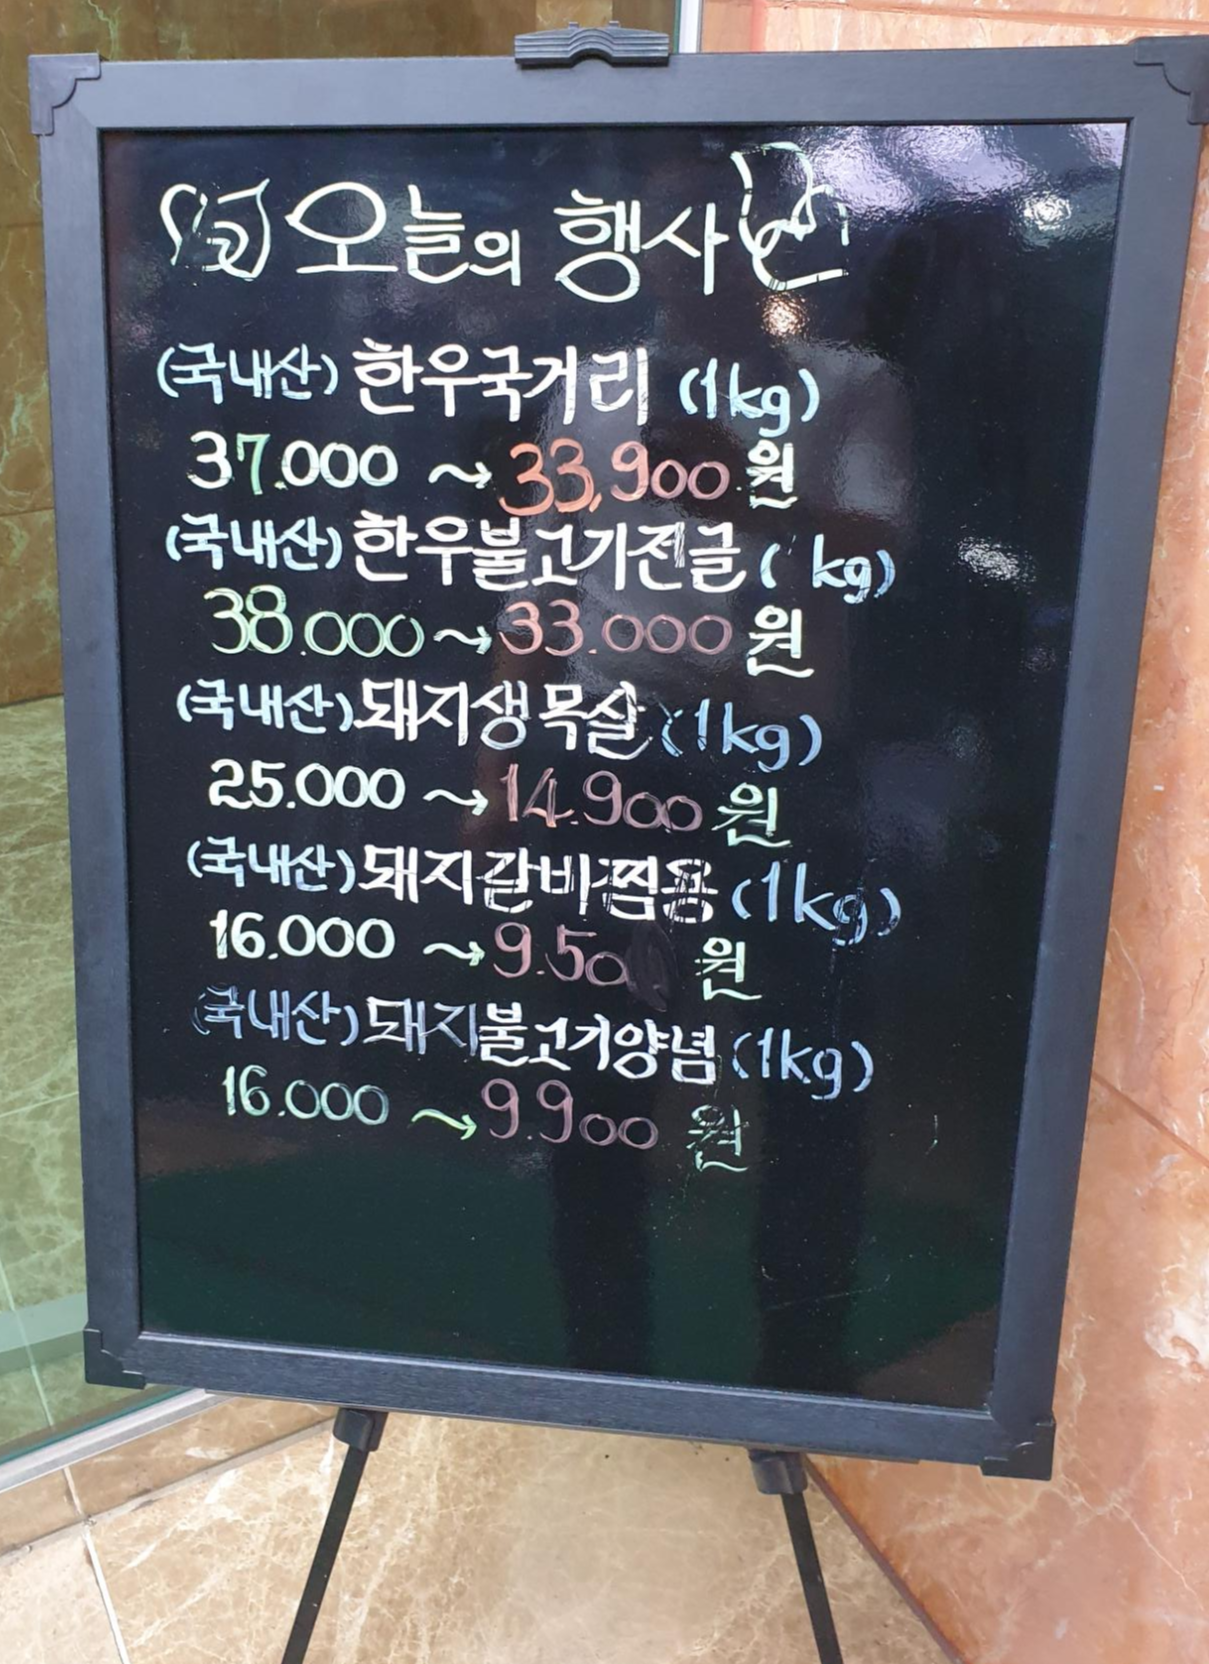 오늘의 행사
(국내산) 한우국거리 (1kg)
37.000 → 33,900 원
(국내산) 한우불고기전글 ( kg)
38.000 → 33.000 원
(국내산) 돼지생목살 (1kg)
25.000 → 14.900 원
(국내산) 돼지갈비찜용 (1kg)
16.000 → 9.50 원
(국내산) 돼지불고기양념 (1kg)
16.000 → 9.900 원